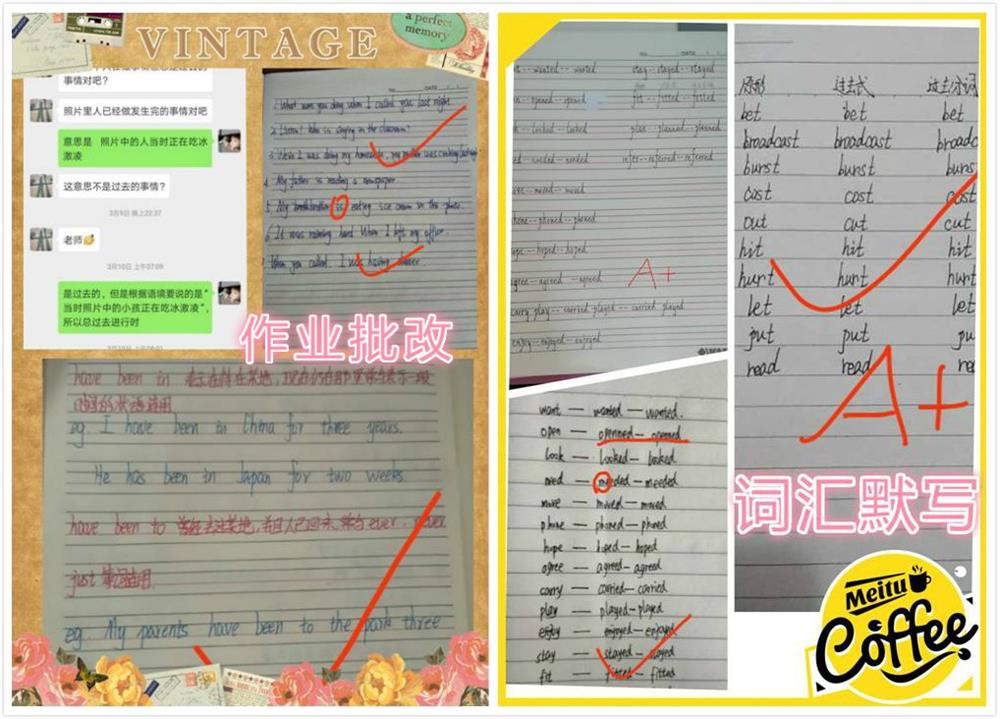 VINTAGE
a perfect
memory
事情对吧？
照片里人已经做发生完的事情对吧
意思是 照片中的人当时正在吃冰
激凌
这意思不是过去的事情？
3月9日 晚上22:37
老师
3月10日 上午07:09
是过去的，但是根据语境要说的是“
当时照片中的小孩正在吃冰激凌”，
所以总过去进行时
1. What were you doing when I called you last night
in the classroom?
3. While I was doing my homework, my mother was cooking
4. My father is reading a newspaper.
is eating ice cream in the
6. It was raining hard When I left my office.
7. When you called. I was having dinner.
作业批改
have been in
eg. I have been in China for three years.
He has been in Japan for two weeks.
have been to
just 等词连用.
eg. My parents have been to the park three
wanted -- wanted stay -- stayed -- stayed
opened -- opened fit -- fitted -- fitted
looked -- looked plan -- planned -- planned
needed -- needed refer -- referred -- referred
moved -- moved
phoned -- phoned
hoped -- hoped
agreed -- agreed
carry play -- carried played -- carried played
enjoy -- enjoyed -- enjoyed
A+
want — wanted — wanted.
open — openned — openned
look — looked — looked
need — needed — needed
move — moved — moved
phone — phoned — phoned
hope — hoped — hoped
agree — agreed — agreed
carry — carried — carried
play — played — played
enjoy — enjoyed — enjoyed
stay — stayed — stayed
fit — fitted — fitted
原形 过去式 过去分词
bet bet bet
broadcast broadcast broadc
burst burst burs
cost cost cost
cut cut cut
hit hit hit
hurt hurt hurt
let let let
put put pu
read read rea
A+
词汇默写
Meitu
Coffee